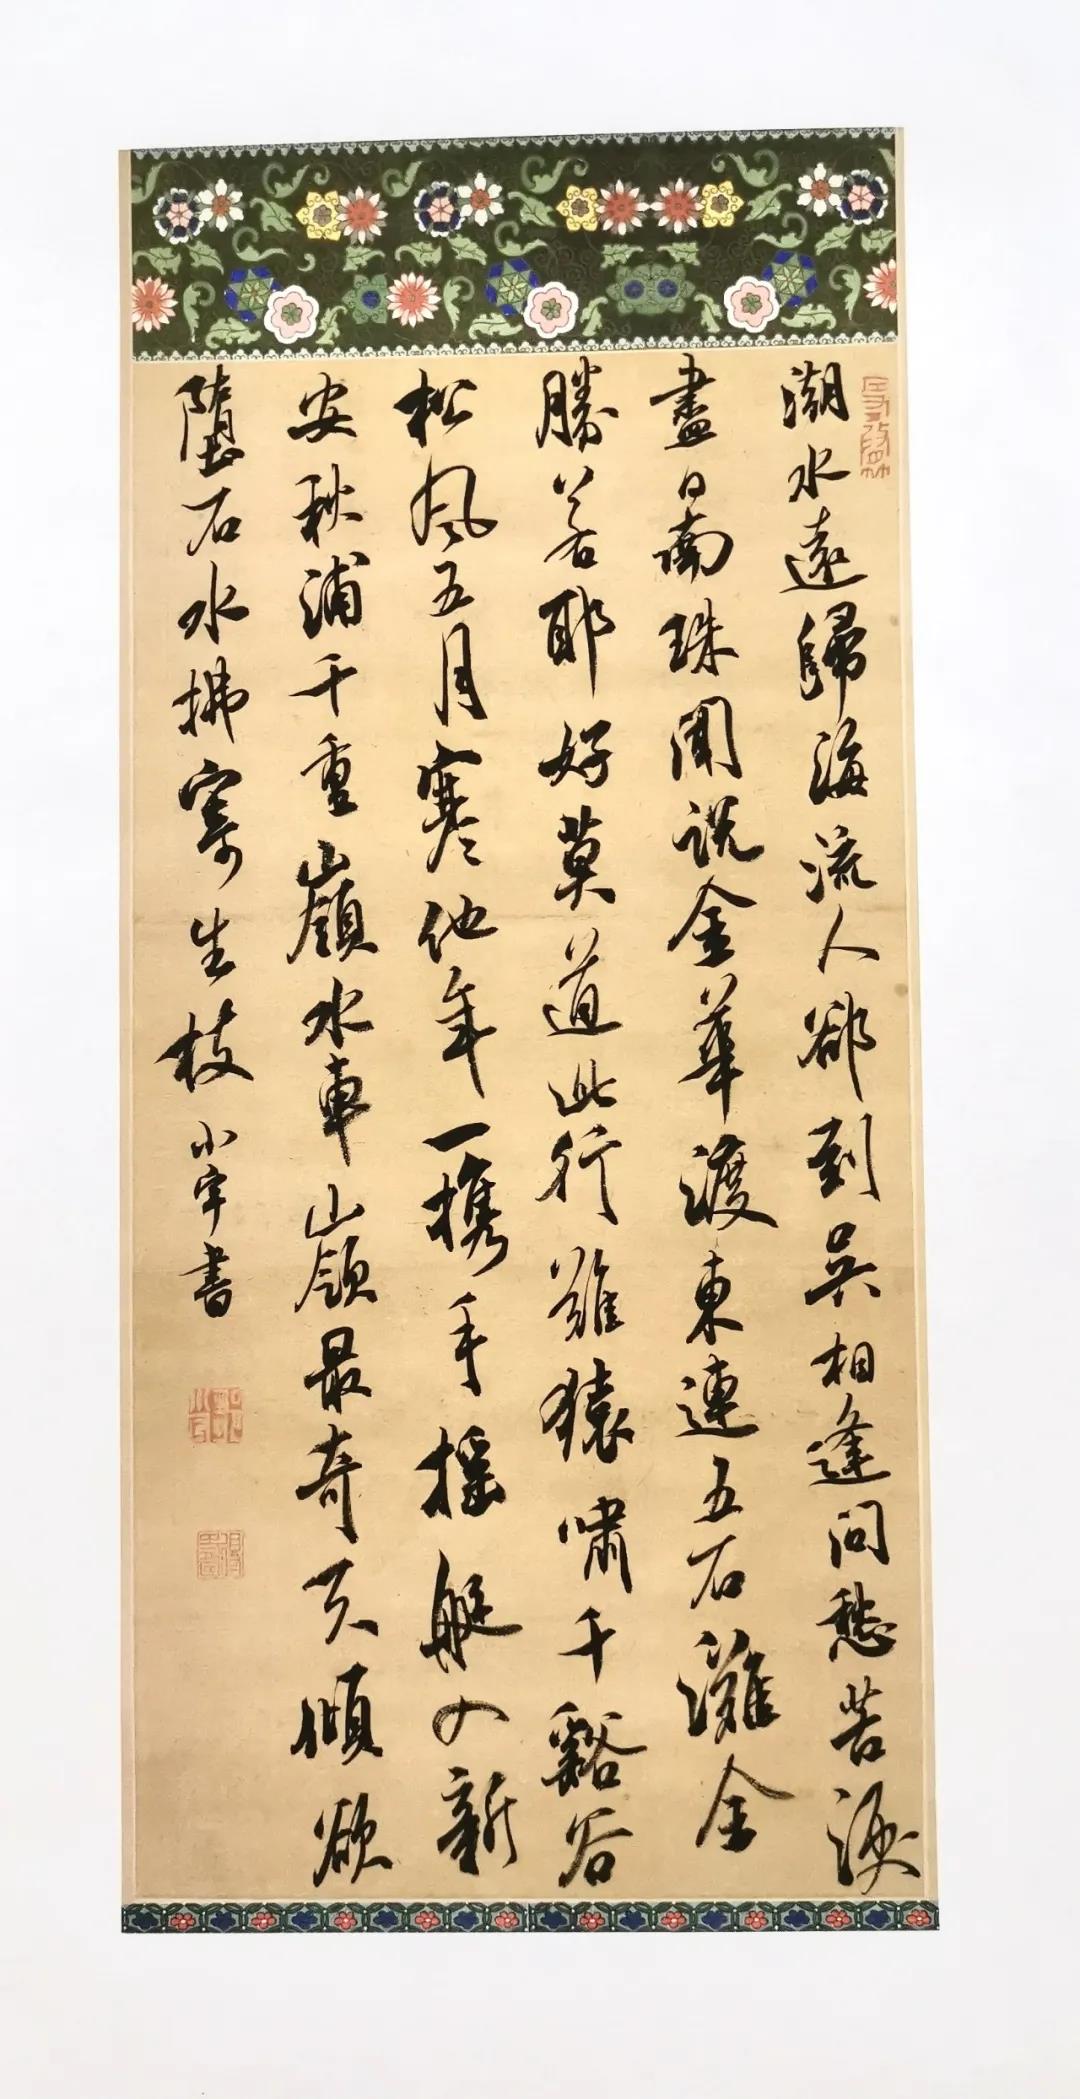 潮水還歸海流人卻到吳相逢問愁苦淚
盡日南珠聞說金華渡東連五百灘全
勝若耶好莫道此行難猿嘯千谿合
松風五月寒他年一攜手搖艇入新
安秋浦千重嶺水車嶺最奇天傾欲
墮石水拂寄生枝 小宇書